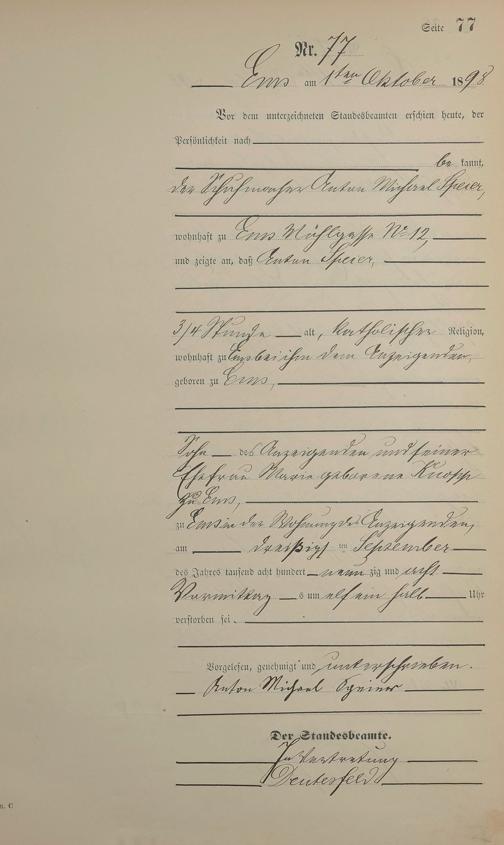 Seite 77
Nr. 77
Ems am 1ten Oktober 1898
Vor dem unterzeichneten Standesbeamten erschien heute, der
Persönlichkeit nach
be kannt,
der Schuhmacher Anton Michael Speier,
wohnhaft zu Ems Mühlgasse No 12,
und zeigte an, daß Anton Speier,
3/4 Stunde alt, katholischer Religion,
wohnhaft zu Ems bei ihm dem Anzeigenden,
geboren zu Ems,
Sohn des Anzeigenden und seiner
Ehefrau Marie geborene Knopp
zu Ems,
zu Ems in der Wohnung des Anzeigenden,
am dreißigsten September
des Jahres tausend acht hundert neun zig und acht
Vormittags um elf ein halb Uhr
verstorben sei.
Vorgelesen, genehmigt und unterschrieben.
Anton Michael Speier
Der Standesbeamte.
In Vertretung
n. C